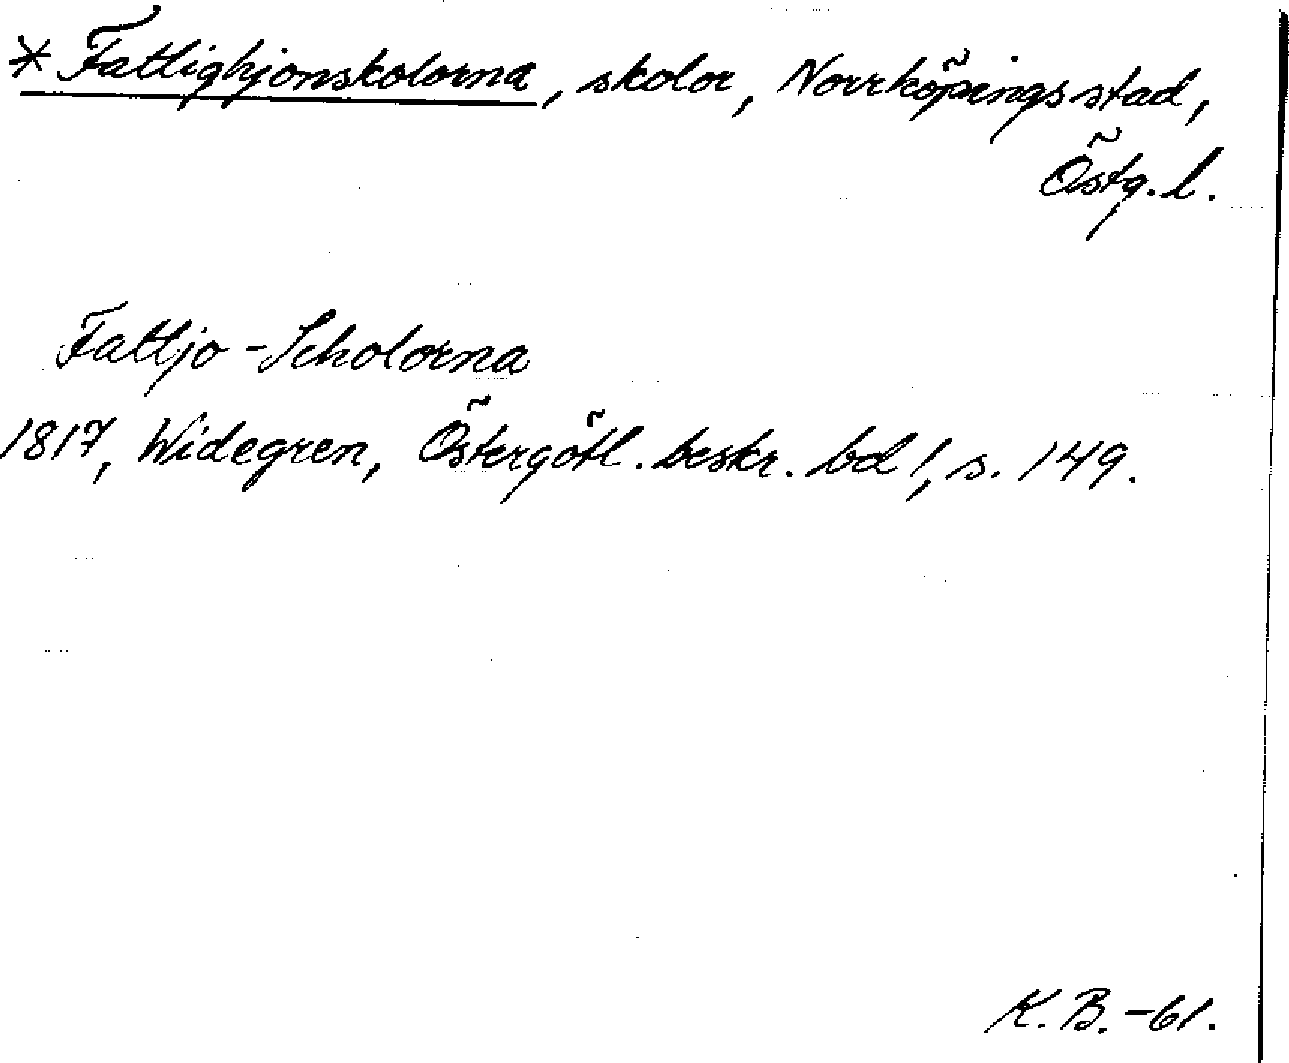 * Fattighjonskolorna, skolor, Norrköpings stad,
Östg. l.
Fattjo-Scholorna
1817, Widegren, Östergötl. beskr. bd 1, s. 149.
K. B. -61.